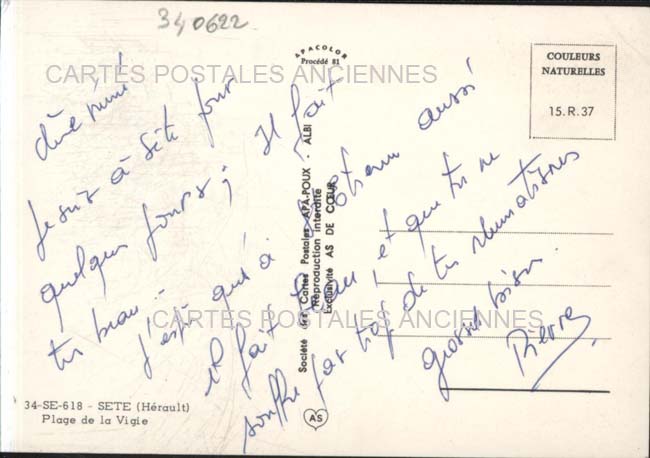 340622
APACOLOR
Procédé 81
CARTES POSTALES ANCIENNES
COULEURS
NATURELLES
15.R.37
Je suis à Sète pour
quelques jours ; Il fait
très beau...
j'espère qu'à aussi
il fait beau ! et que tu ne
souffre pas trop de tes rhumatismes
grosses bises
Pierre
Société des Cartes Postales APA-POUX - ALBI
Reproduction interdite
Exclusivité AS DE CŒUR
CARTES POSTALES ANCIENNES
34-SE-618 - SETE (Hérault)
Plage de la Vigie
AS